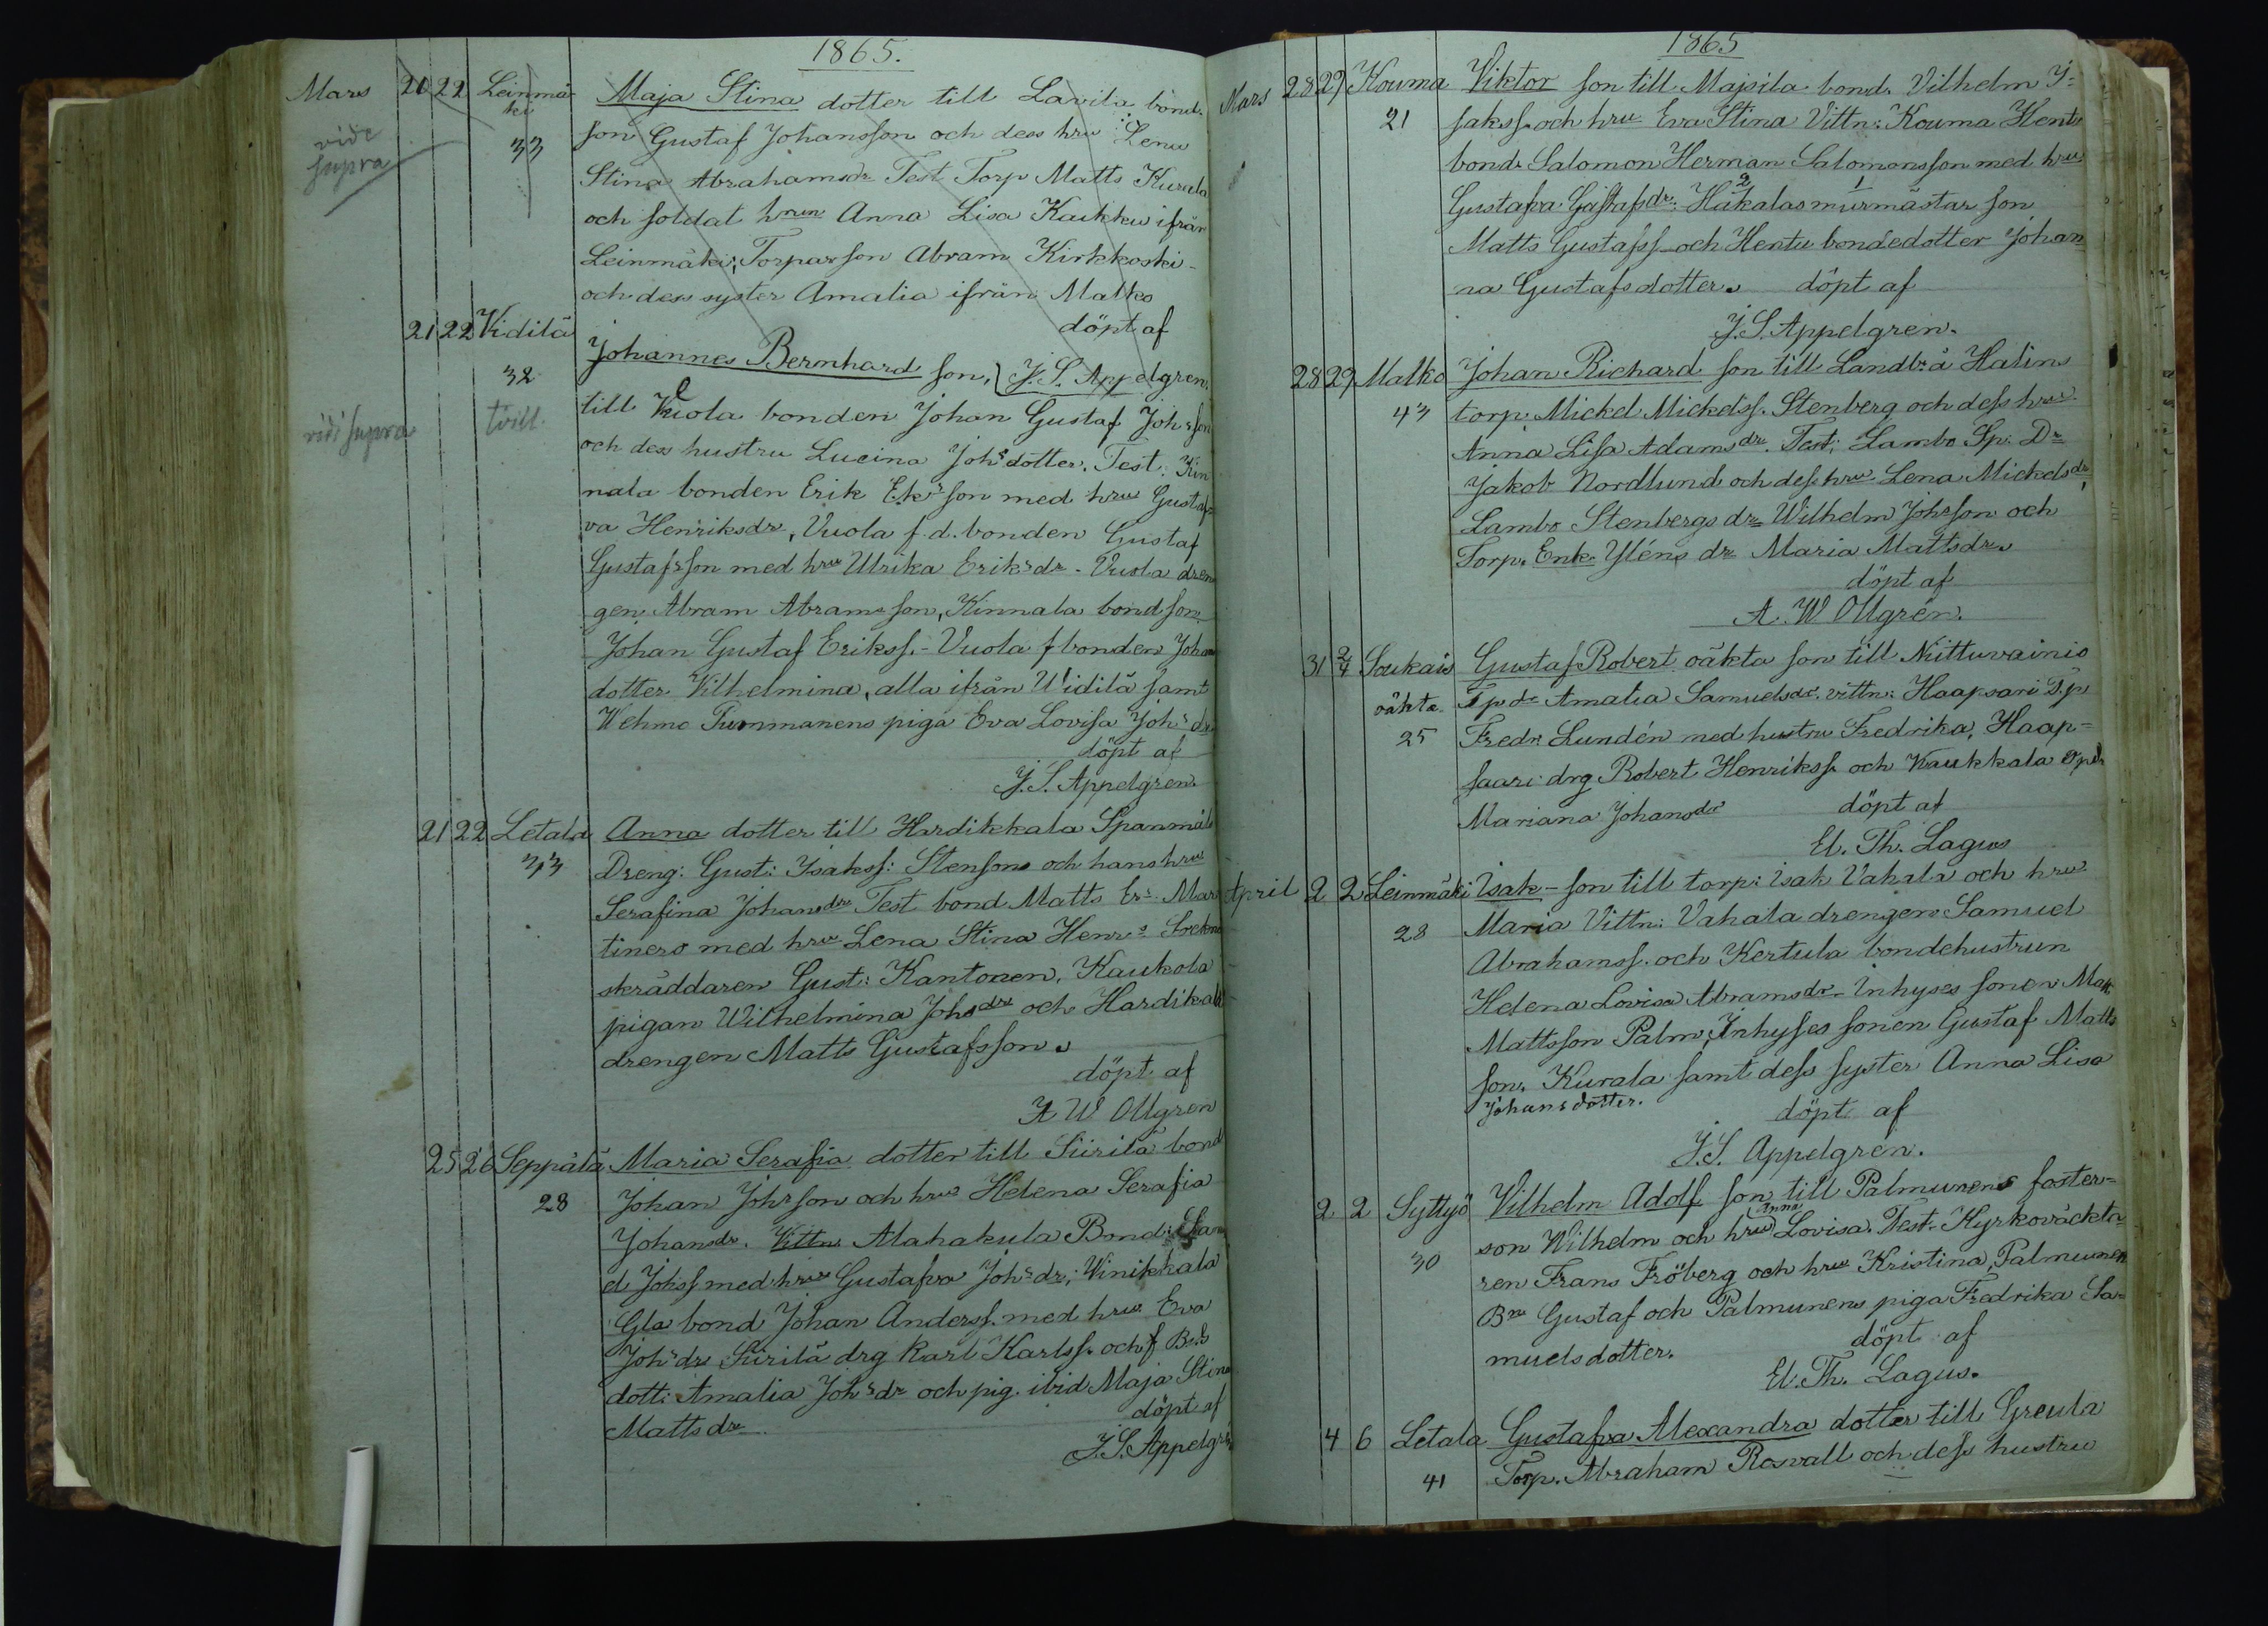 1865.
Mars 21 22 Leinmäki Maja Stina dotter till Lavila bond.
vide supra 33 son Gustaf Johansson och dess hru Lena
Stina Abrahamsdr Test Torp Matts Kurula
och soldat hrun Anna Lisa Kaukku ifrån
Leinmäki, Torparson Abram Kirkkoski-
och dess syster Amalia ifrån Malko
döpt af
J. S. Appelgren.
21 22 Vidilä Johannes Bernhard son,
32 till Vuola bonden Johan Gustaf Johsson
vidi supra tvill. och dess hustru Lucina Johsdotter. Test. Kin
nala bonden Erik Eksson med hru Gustaf=
va Henriksdr, Vuola f.d. bonden Gustaf
Gustafsson med hru Ulrika Eriksdr - Vuola dren
gen Abram Abramsson, Kinnala bondson
Johan Gustaf Erikss. - Vuola f bonden Joha
dotter Vilhelmina, alla ifrån Widilä samt
Wehmo Pummanens piga Eva Lovisa Johsdr
döpt af
J. S. Appelgren.
21 22 Letala Anna dotter till Hardikkala Spanmåls
33 Dreng: Gust: Isakss: Stensons och hans hru
Serafina Johansdr Test bond Matts Ers Mar
tinero med hru Lena Stina Henrs Sockne
skräddaren Gust: Kantonen, Kaukola
pigan Wilhelmina Johsdr och Hardikala
drengen Matts Gustafsson.
döpt af
A W Ollgren
25 26 Seppälä Maria Serafia dotter till Siirilä bond
28 Johan Johsson och hru Helena Serafia
Johansdr. Vittn. Alahakula Bond:
el Johss med hru Gustafva Johsdr; Winikkala
Gla bond Johan Anderss. med hru Eva
Johsdr Siirilä drg Karl Karlss. och f Bds
dott: Amalia Johsdr och pig. ibid Maja Stina
Mattsdr
döpt af
J. S. Appelgre
1865
Mars 28 29 Kouma Viktor son till Majsila bond. Vilhelm I-
21 sakss. och hru Eva Stina Vittn: Kouma Hent
bond. Salomon Herman Salomonsson med hru
Gustafva Gustafsdr: Hakalas murmästar son
Matts Gustafss och Hentu bondedotter Johan
na Gustafsdotter. döpt af
J. S. Appelgren.
28 29 Malko Johan Richard son till Landbrå Halins
43 torp. Mickel Mickelss. Stenberg och dess hru
Anna Lisa Adamsdr. Test: Lambo Sp. Dr
Jakob Nordlund och dess hru Lena Mickelsdr,
Lambo Stenbergs dr Wilhelm Johsson och
Torp. Enk. Yléns dr Maria Mattsdr.
döpt af
A. W Ollgrén.
31 2/4 Soukais Gustaf Robert oäkta son till Niittuvainio
oäkta Tp dr Amalia Samuelsdr. vittn: Haapsari Tp
25 Fredr: Lundén med hustru Fredrika, Haap=
saari drg Robert Henrikss. och Kaukkala
Mariana Johansdr döpt af
El. Th. Lagus
April 2 2 Leinmäki Isak - son till torp: Isak Vahala och hru
28 Maria Vittn: Vahala drengen Samuel
Abrahamss. och Kertula bondehustrun
Helena Lovisa Abramsdr - Inhyses sonen Matt
Mattsson Palm, Inhyses sonen Gustaf Matts
son Kurala samt dess syster Anna Lisa
Johansdotter. döpt af
J. S. Appelgren.
2 2 Syttyö Vilhelm Adolf son till Palmunens foster=
30 son Wilhelm och hru Anna Lovisa. Test - Kyrkoväckta
ren Frans Fröberg och hru Kristina, Palmunen
Bn Gustaf och Palmunens piga Fredrika Sa=
muelsdotter. döpt af
El. Th. Lagus.
4 6 Letala Gustafva Alexandra dotter till Greula
41 Torp. Abraham Rosvall och dess hustru